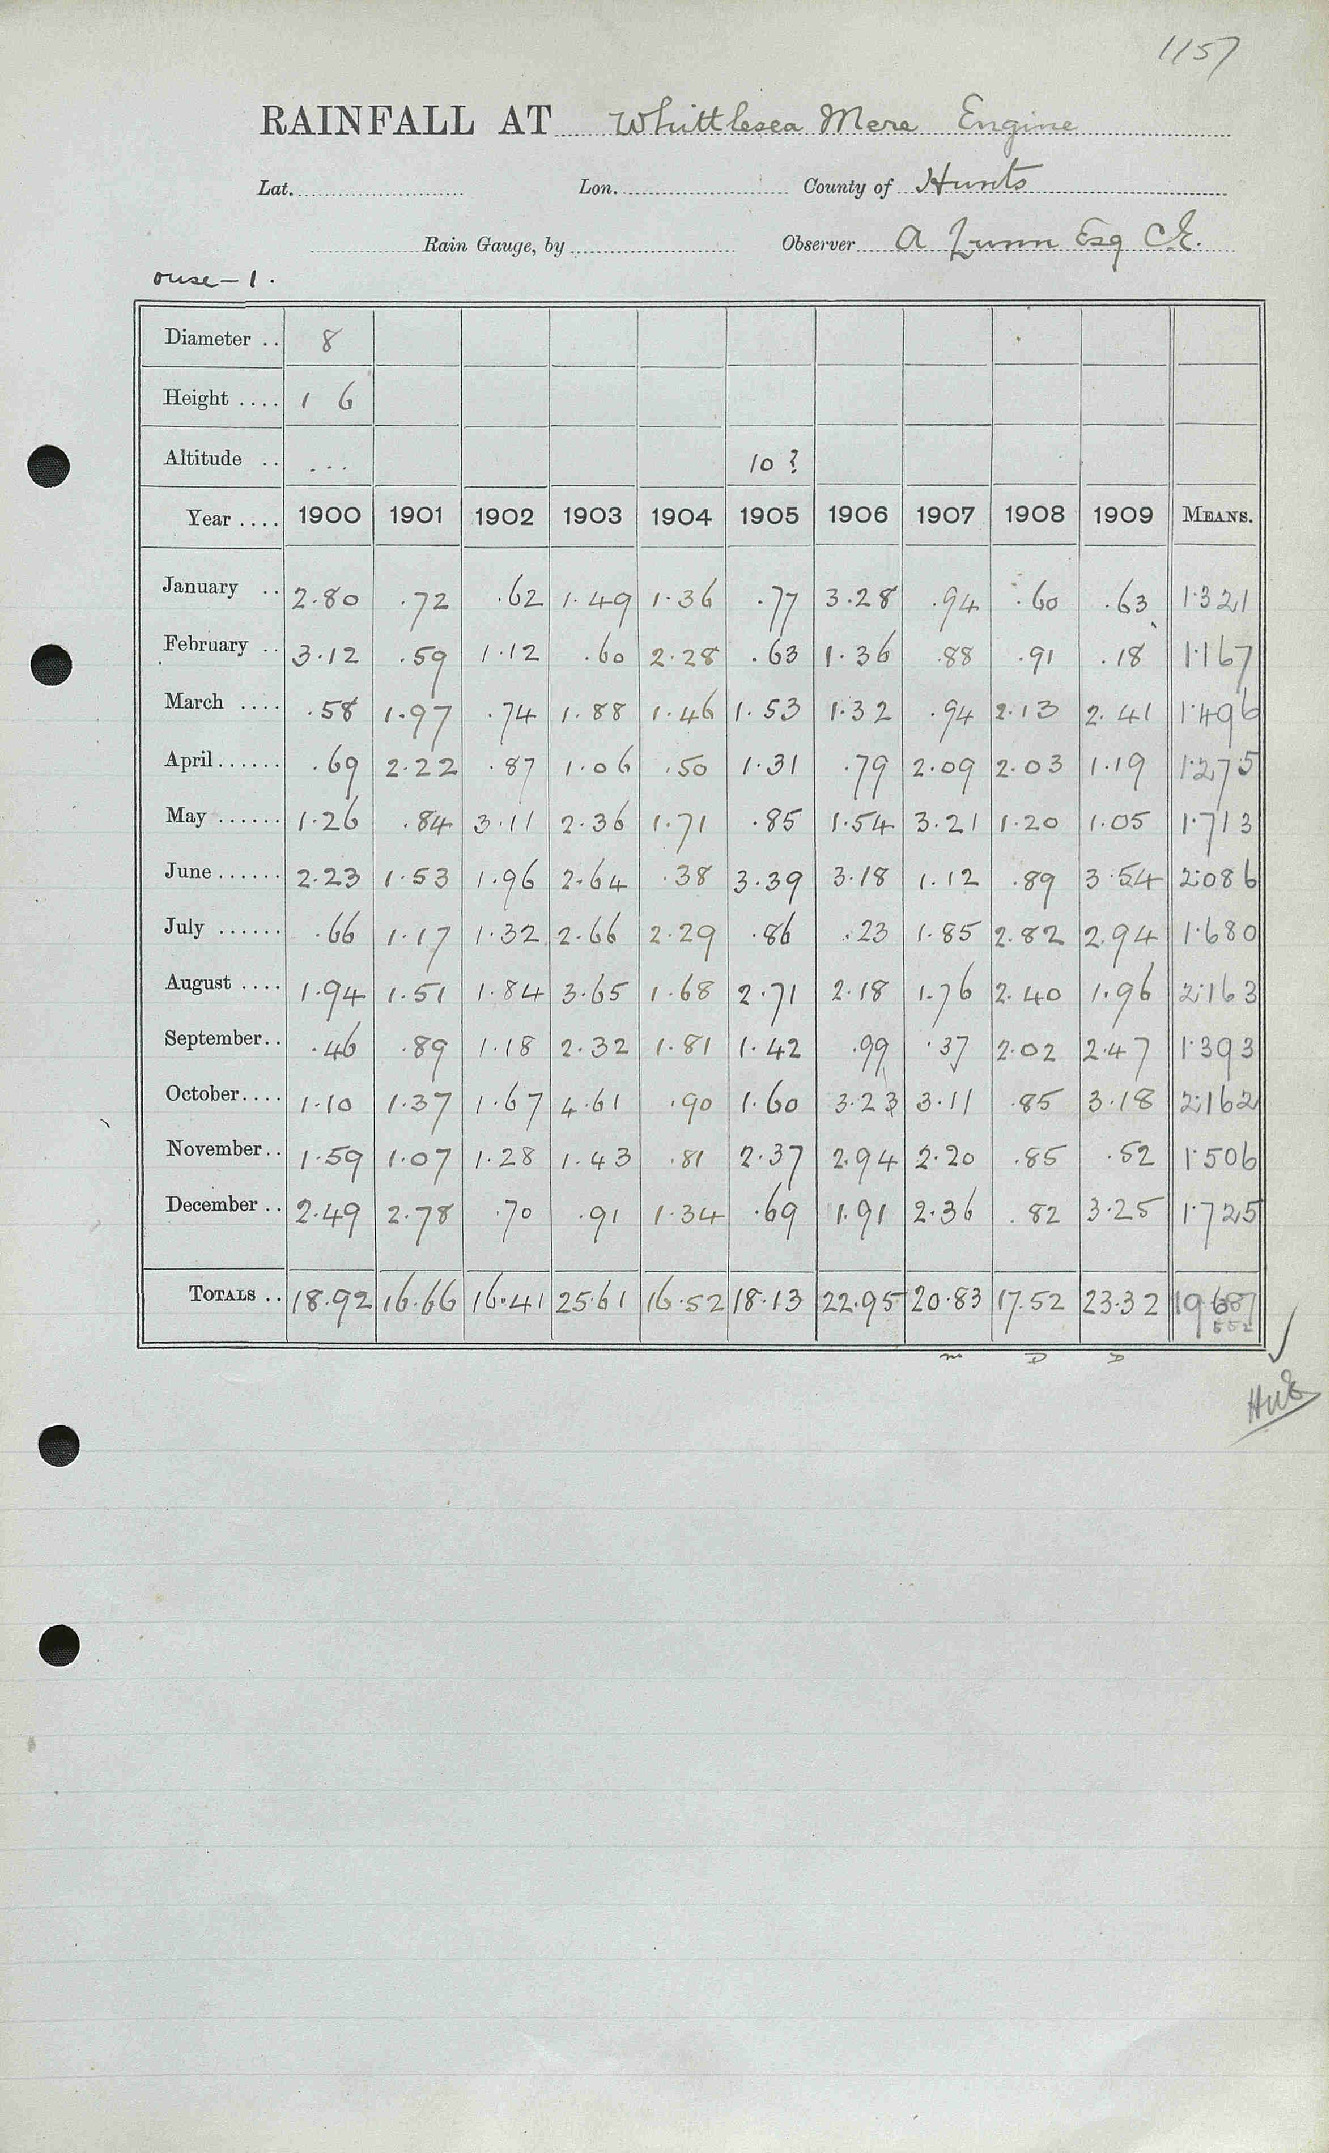 1157
RAINFALL AT Whittlesea Mere Engine
Lat. Lon. County of Hunts
Rain Gauge, by Observer A Lunn Esq C.E.
Ouse - 1.
Diameter .. 8
Height .... 1 6
Altitude .. ... 10 ?
Year .... 1900 1901 1902 1903 1904 1905 1906 1907 1908 1909 MEANS.
January .. 2.80 .72 .62 1.49 1.36 .77 3.28 .94 .60 .63 1.321
February .. 3.12 .59 1.12 .60 2.28 .63 1.36 .88 .91 .18 1.167
March .... .58 1.97 .74 1.88 1.46 1.53 1.32 .94 2.13 2.41 1.496
April ...... .69 2.22 .87 1.06 .50 1.31 .79 2.09 2.03 1.19 1.275
May ...... 1.26 .84 3.11 2.36 1.71 .85 1.54 3.21 1.20 1.05 1.713
June ...... 2.23 1.53 1.96 2.64 .38 3.39 3.18 1.12 .89 3.54 2.086
July ...... .66 1.17 1.32 2.66 2.29 .86 .23 1.85 2.82 2.94 1.680
August .... 1.94 1.51 1.84 3.65 1.68 2.71 2.18 1.76 2.40 1.96 2.163
September .. .46 .89 1.18 2.32 1.81 1.42 .99 .37 2.02 2.47 1.393
October .... 1.10 1.37 1.67 4.61 .90 1.60 3.23 3.11 .85 3.18 2.162
November .. 1.59 1.07 1.28 1.43 .81 2.37 2.94 2.20 .85 .52 1.506
December .. 2.49 2.78 .70 .91 1.34 .69 1.91 2.36 .82 3.25 1.725
TOTALS .. 18.92 16.66 16.41 25.61 16.52 18.13 22.95 20.83 17.52 23.32 19.687
552
m D D